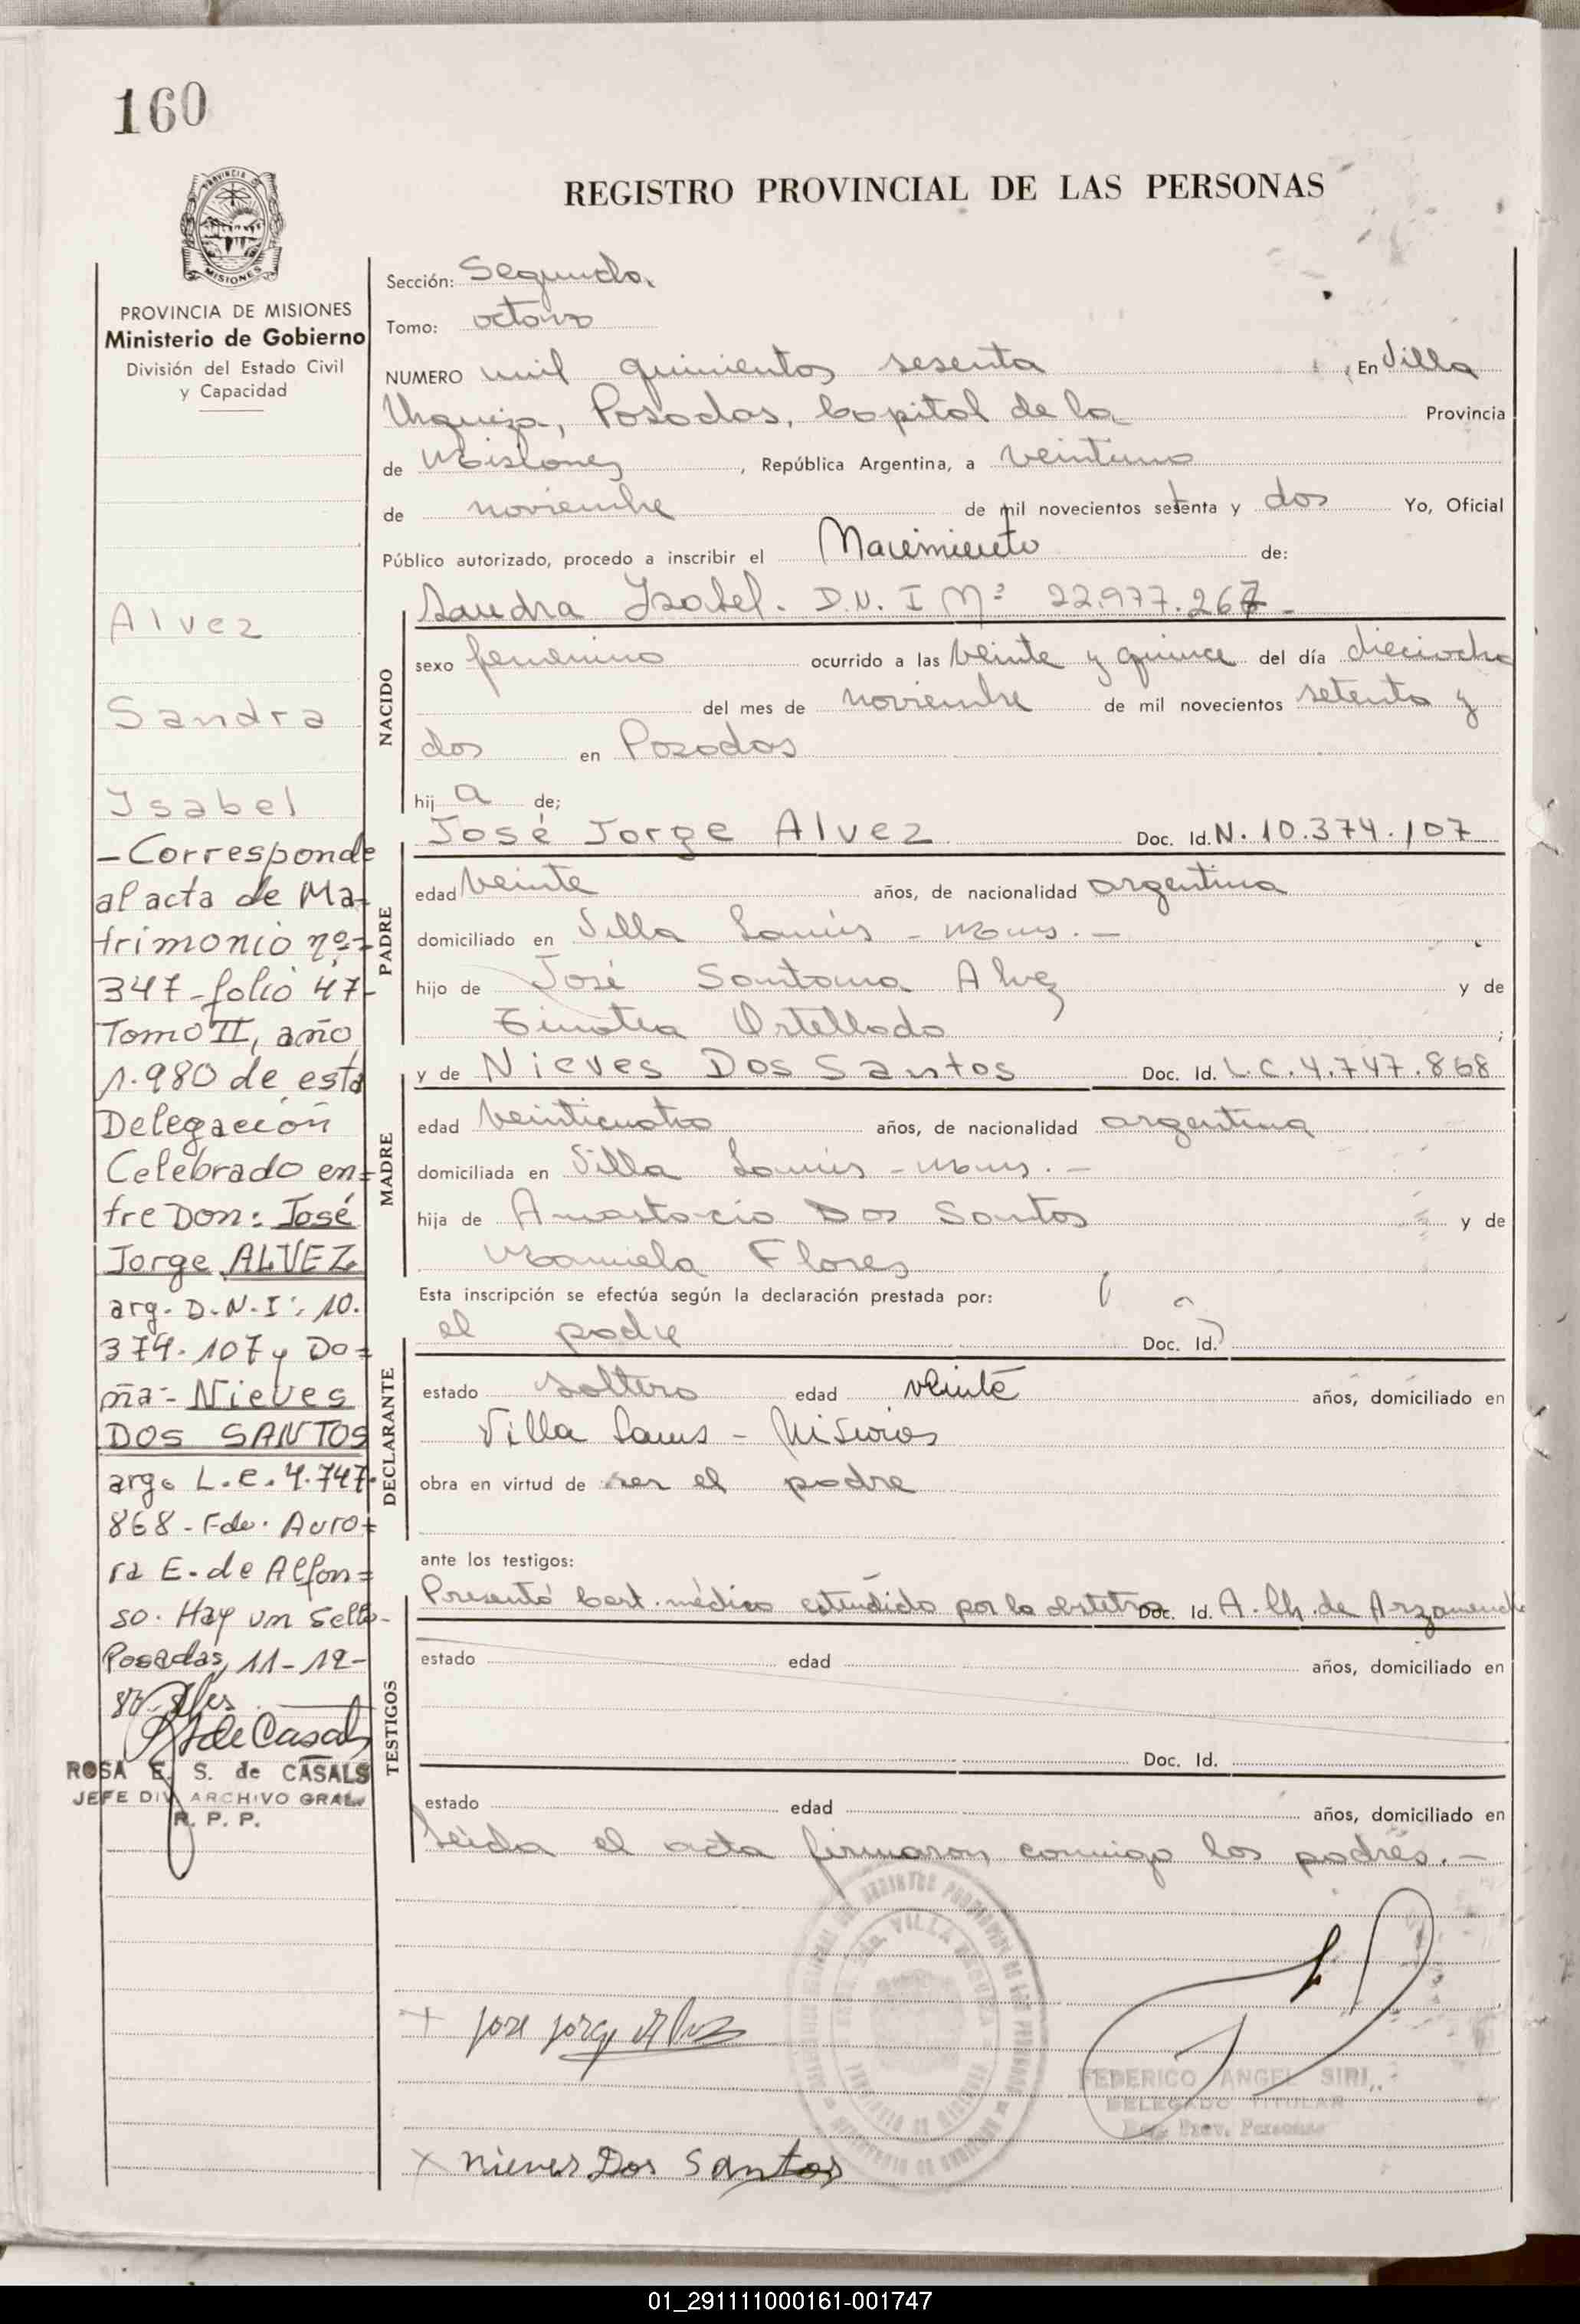 160
REGISTRO PROVINCIAL DE LAS PERSONAS
PROVINCIA DE MISIONES
MISIONES
PROVINCIA DE MISIONES
Ministerio de Gobierno
División del Estado Civil
y Capacidad
Alvez
Sandra
Isabel
- Corresponde
al acta de Ma-
trimonio nº=
347-folio 47-
Tomo II, año
1.980 de esta
Delegación
Celebrado en=
tre Don: José
Jorge ALVEZ
arg. D.N.I: 10.
374.107 y Do=
ña- Nieves
DOS SANTOS
arg. L.C. 4.747.
868 - Fdo. Auro=
ra E. de Alfon=
so. Hay un sello-
Posadas, 11-12-
de Casals
ROSA E. S. de CASALS
JEFE DIV. ARCHIVO GRAL.
R. P. P.
Sección: Segunda
Tomo: octavo
NUMERO mil quinientos sesenta , En Villa
Urquiza, Posadas, Capital de la Provincia
de Misiones , República Argentina, a veintiuno
de noviembre de mil novecientos setenta y dos Yo, Oficial
Público autorizado, procedo a inscribir el Nacimiento de:
Sandra Isabel. D.N.I Nº 22.977.267-
NACIDO
sexo femenino ocurrido a las veinte y quince del día dieciocho
del mes de noviembre de mil novecientos setenta y
dos en Posadas
hij a de;
José Jorge Alvez Doc. Id. N. 10.374.107
PADRE
edad veinte años, de nacionalidad argentina
domiciliado en Villa Lanús - Mnes. -
hijo de José Santana Alvez y de
Timotea Ortellado ;
y de Nieves Dos Santos Doc. Id. L.C. 4.747.868
MADRE
edad veinticuatro años, de nacionalidad argentina
domiciliada en Villa Lanús - Mnes. -
hija de Anastacio Dos Santos y de
Maniela Flores
Esta inscripción se efectúa según la declaración prestada por:
el padre Doc. Id.
DECLARANTE
estado soltero edad veinte años, domiciliado en
Villa Lanus - Misiones
obra en virtud de ser el padre
ante los testigos:
Presentó Cert. médico extendido por la obstetra Doc. Id. A. Ch. de Arzamendia
TESTIGOS
estado edad años, domiciliado en
Doc. Id.
estado edad años, domiciliado en
Leida el acta firmaron conmigo los padres. -
+ Jose Jorge Alvez
VILLA URQUIZA
FEDERICO ANGEL SIRI
DELEGADO TITULAR
Reg. Prov. Personas
x Nieves Dos Santos
01_291111000161-001747